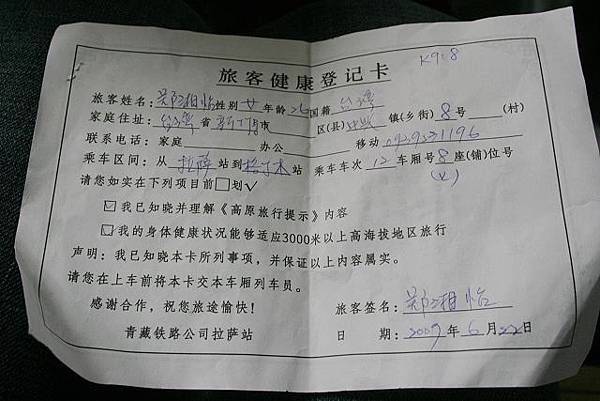 K918
旅客健康登记卡
旅客姓名：郑湘怡 性别 女 年龄 26 国籍 台湾
家庭住址：台湾 省 新竹 市 区(县) 镇(乡街) 8号 (村)
联系电话：家庭 办公 移动 0939531196
乘车区间：从 拉萨 站到 格尔木 站 乘车车次 12 车厢号 8 座(铺)位号
请您如实在下列项目前□划√ (上)
☑我已知晓并理解《高原旅行提示》内容
☑我的身体健康状况能够适应3000米以上高海拔地区旅行
声明：我已知晓本卡所列事项，并保证以上内容属实。
请您在上车前将本卡交本车厢列车员。
感谢合作，祝您旅途愉快！
旅客签名：郑湘怡
青藏铁路公司拉萨站
日 期：2009年6月22日